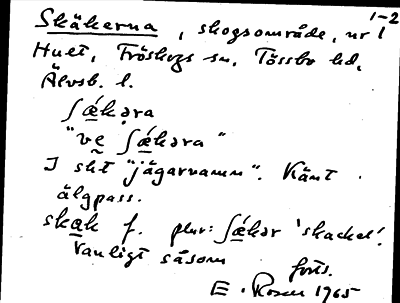 1-2
Skäkerna, skogsområde, nr 1
Huet, Fröskogs sn, Tössbo hd,
Älvsb. l.
ʃǽkəra
"ve ʃǽkəra"
I sht "jägarnamn". Känt
älgpass.
skak f. plur: ʃǽkər 'skackel'.
Vanligt såsom
forts.
E. Rosen 1965